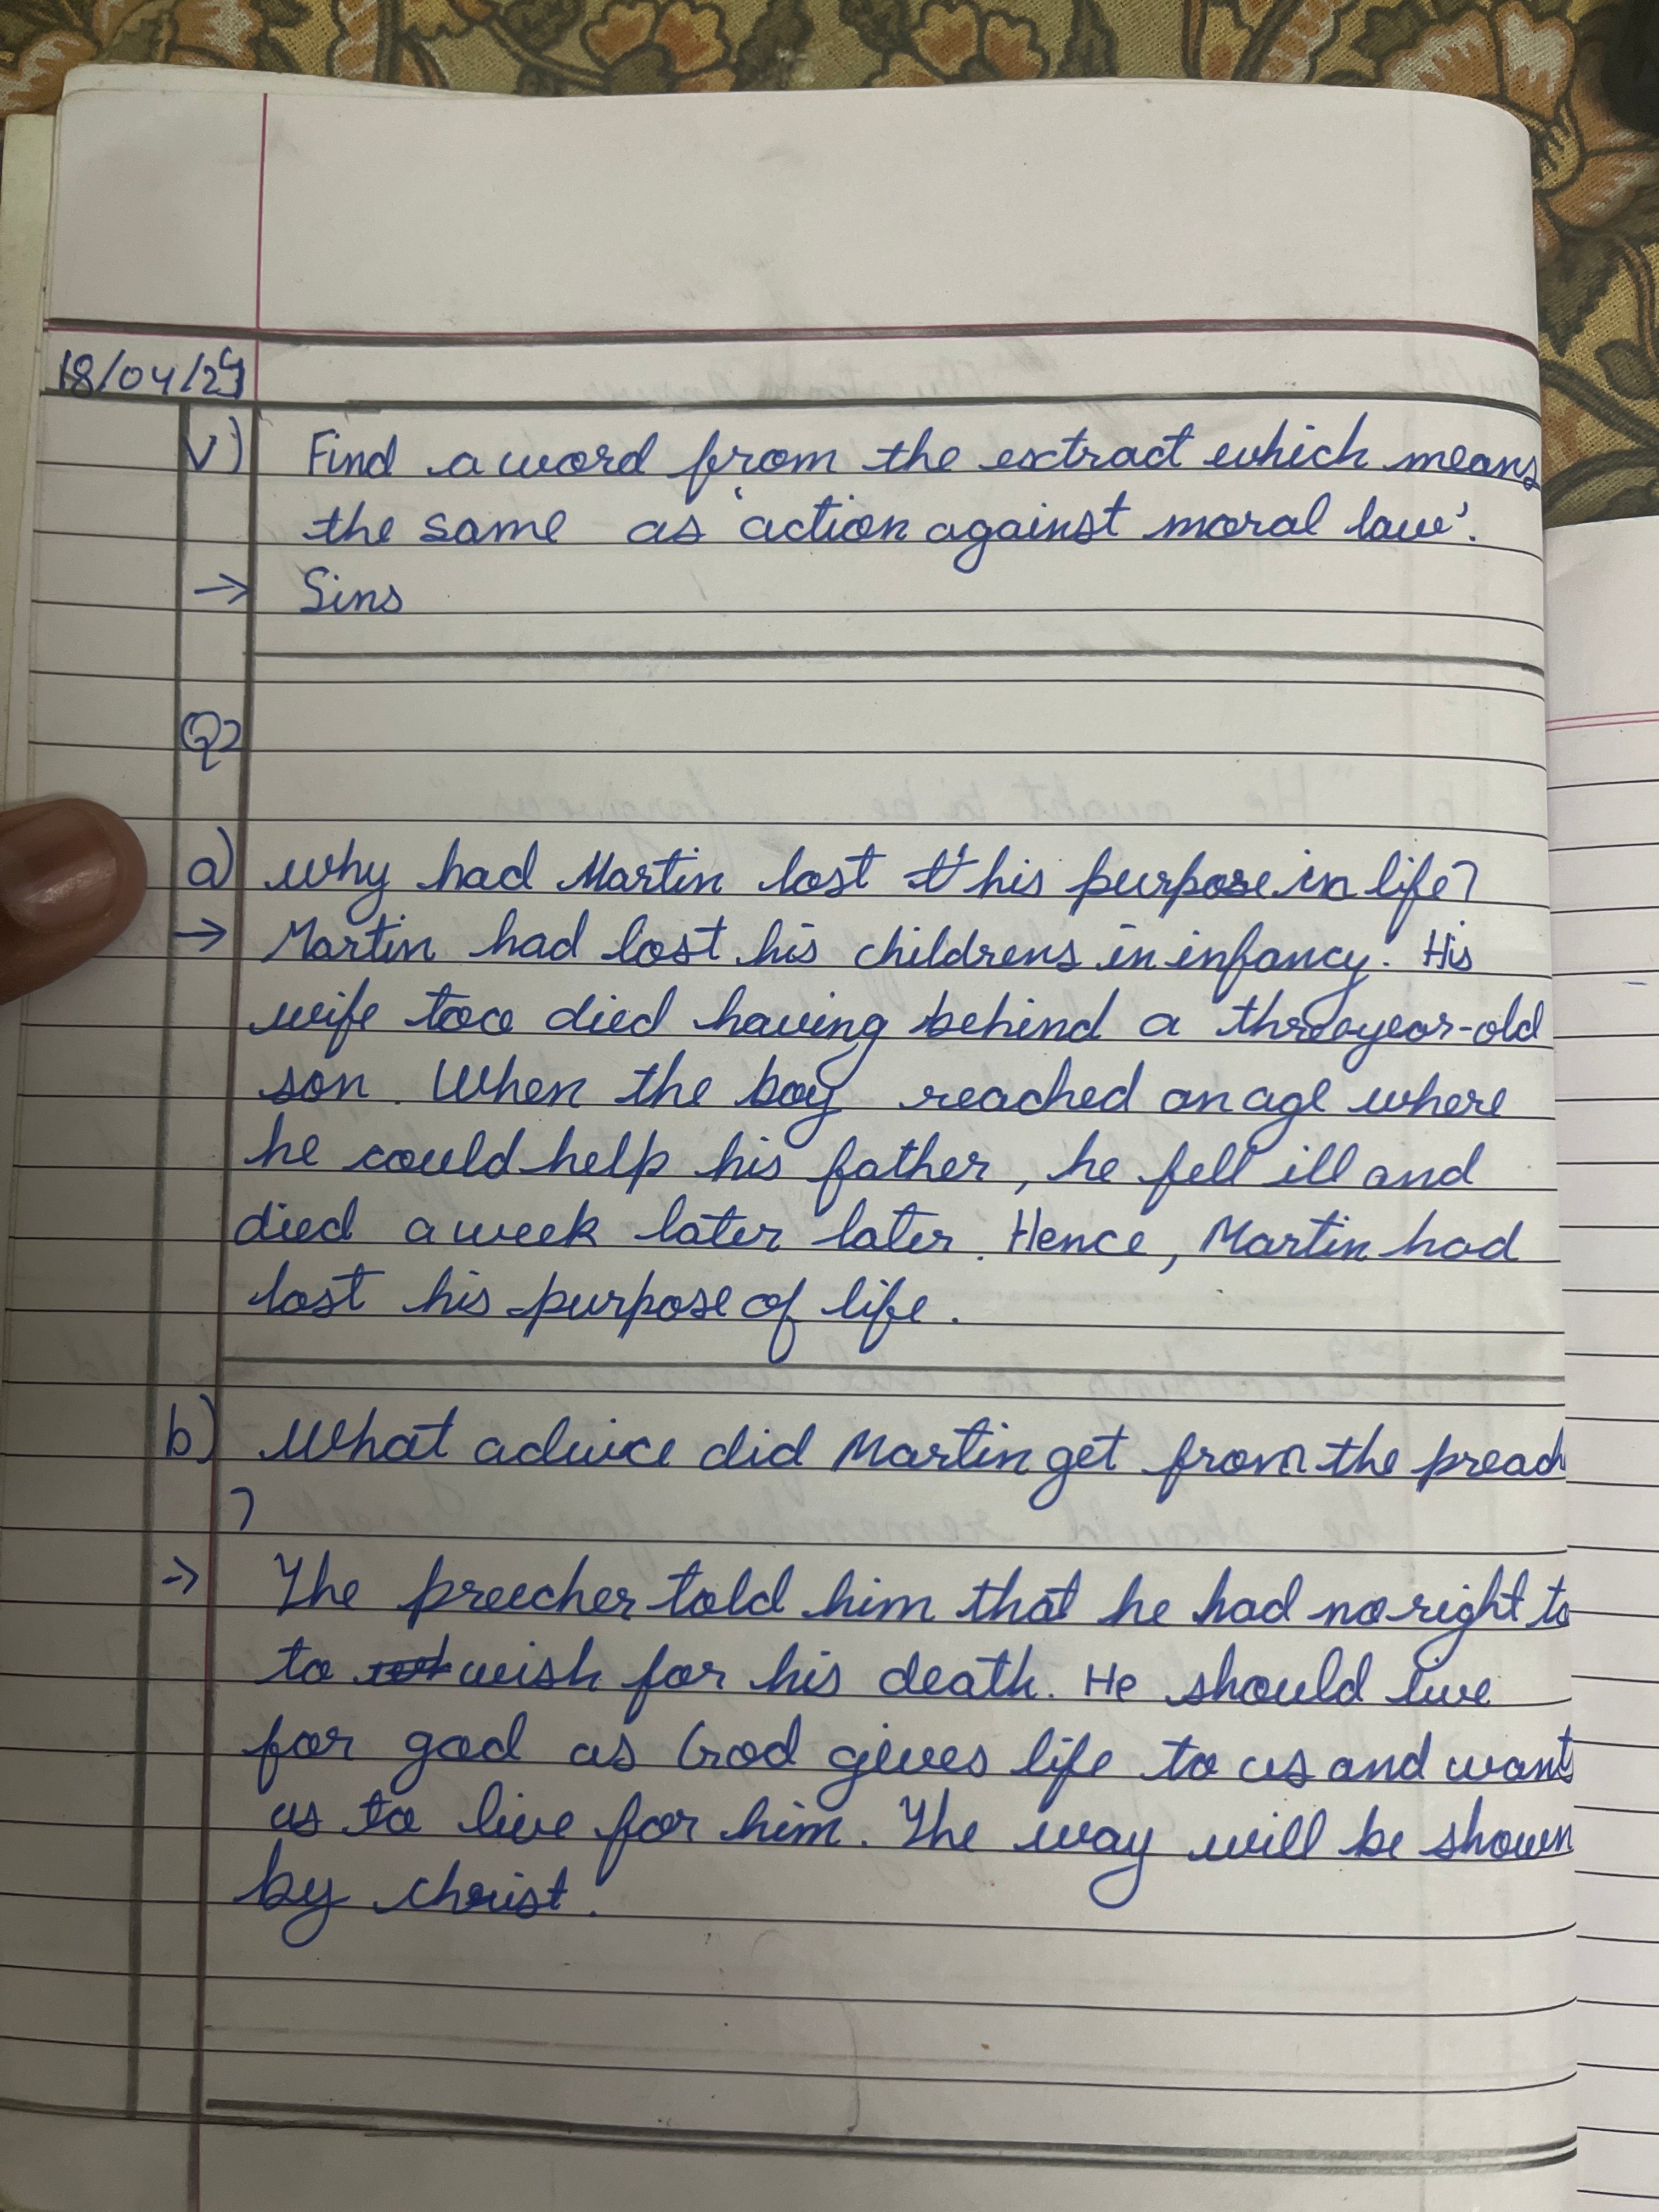 18/04/24
V) Find a word from the extract which means
the same as 'action against moral law'.
→ Sins
Q2
a) why had Martin lost his purpose in life?
→ Martin had lost his childrens in infancy. His
wife too died having behind a three year-old
son. When the boy reached an age where
he could help his father, he fell ill and
died a week later later. Hence, Martin had
lost his purpose of life.
b) What advice did Martin get from the preach
?
→ The preecher told him that he had no right to
to wish for his death. He should live
for god as God gives life to us and want
us to live for him. The way will be shown
by christ.